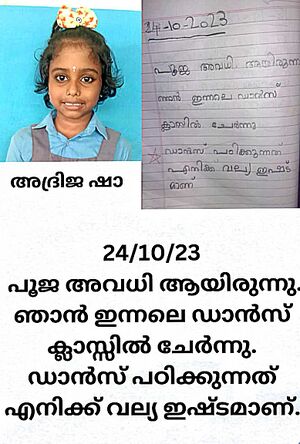 24-10-2023
പൂജ അവധി ആയിരുന്നു
ഞാൻ ഇന്നലെ ഡാൻസ്
ക്ലാസിൽ ചേർന്നു
ഡാൻസ് പഠിക്കുന്നത്
എനിക്ക് വല്യ ഇഷ്ട
മാണ്
അദ്രിജ ഷാ
24/10/23
പൂജ അവധി ആയിരുന്നു.
ഞാൻ ഇന്നലെ ഡാൻസ്
ക്ലാസ്സിൽ ചേർന്നു.
ഡാൻസ് പഠിക്കുന്നത്
എനിക്ക് വല്യ ഇഷ്ടമാണ്.